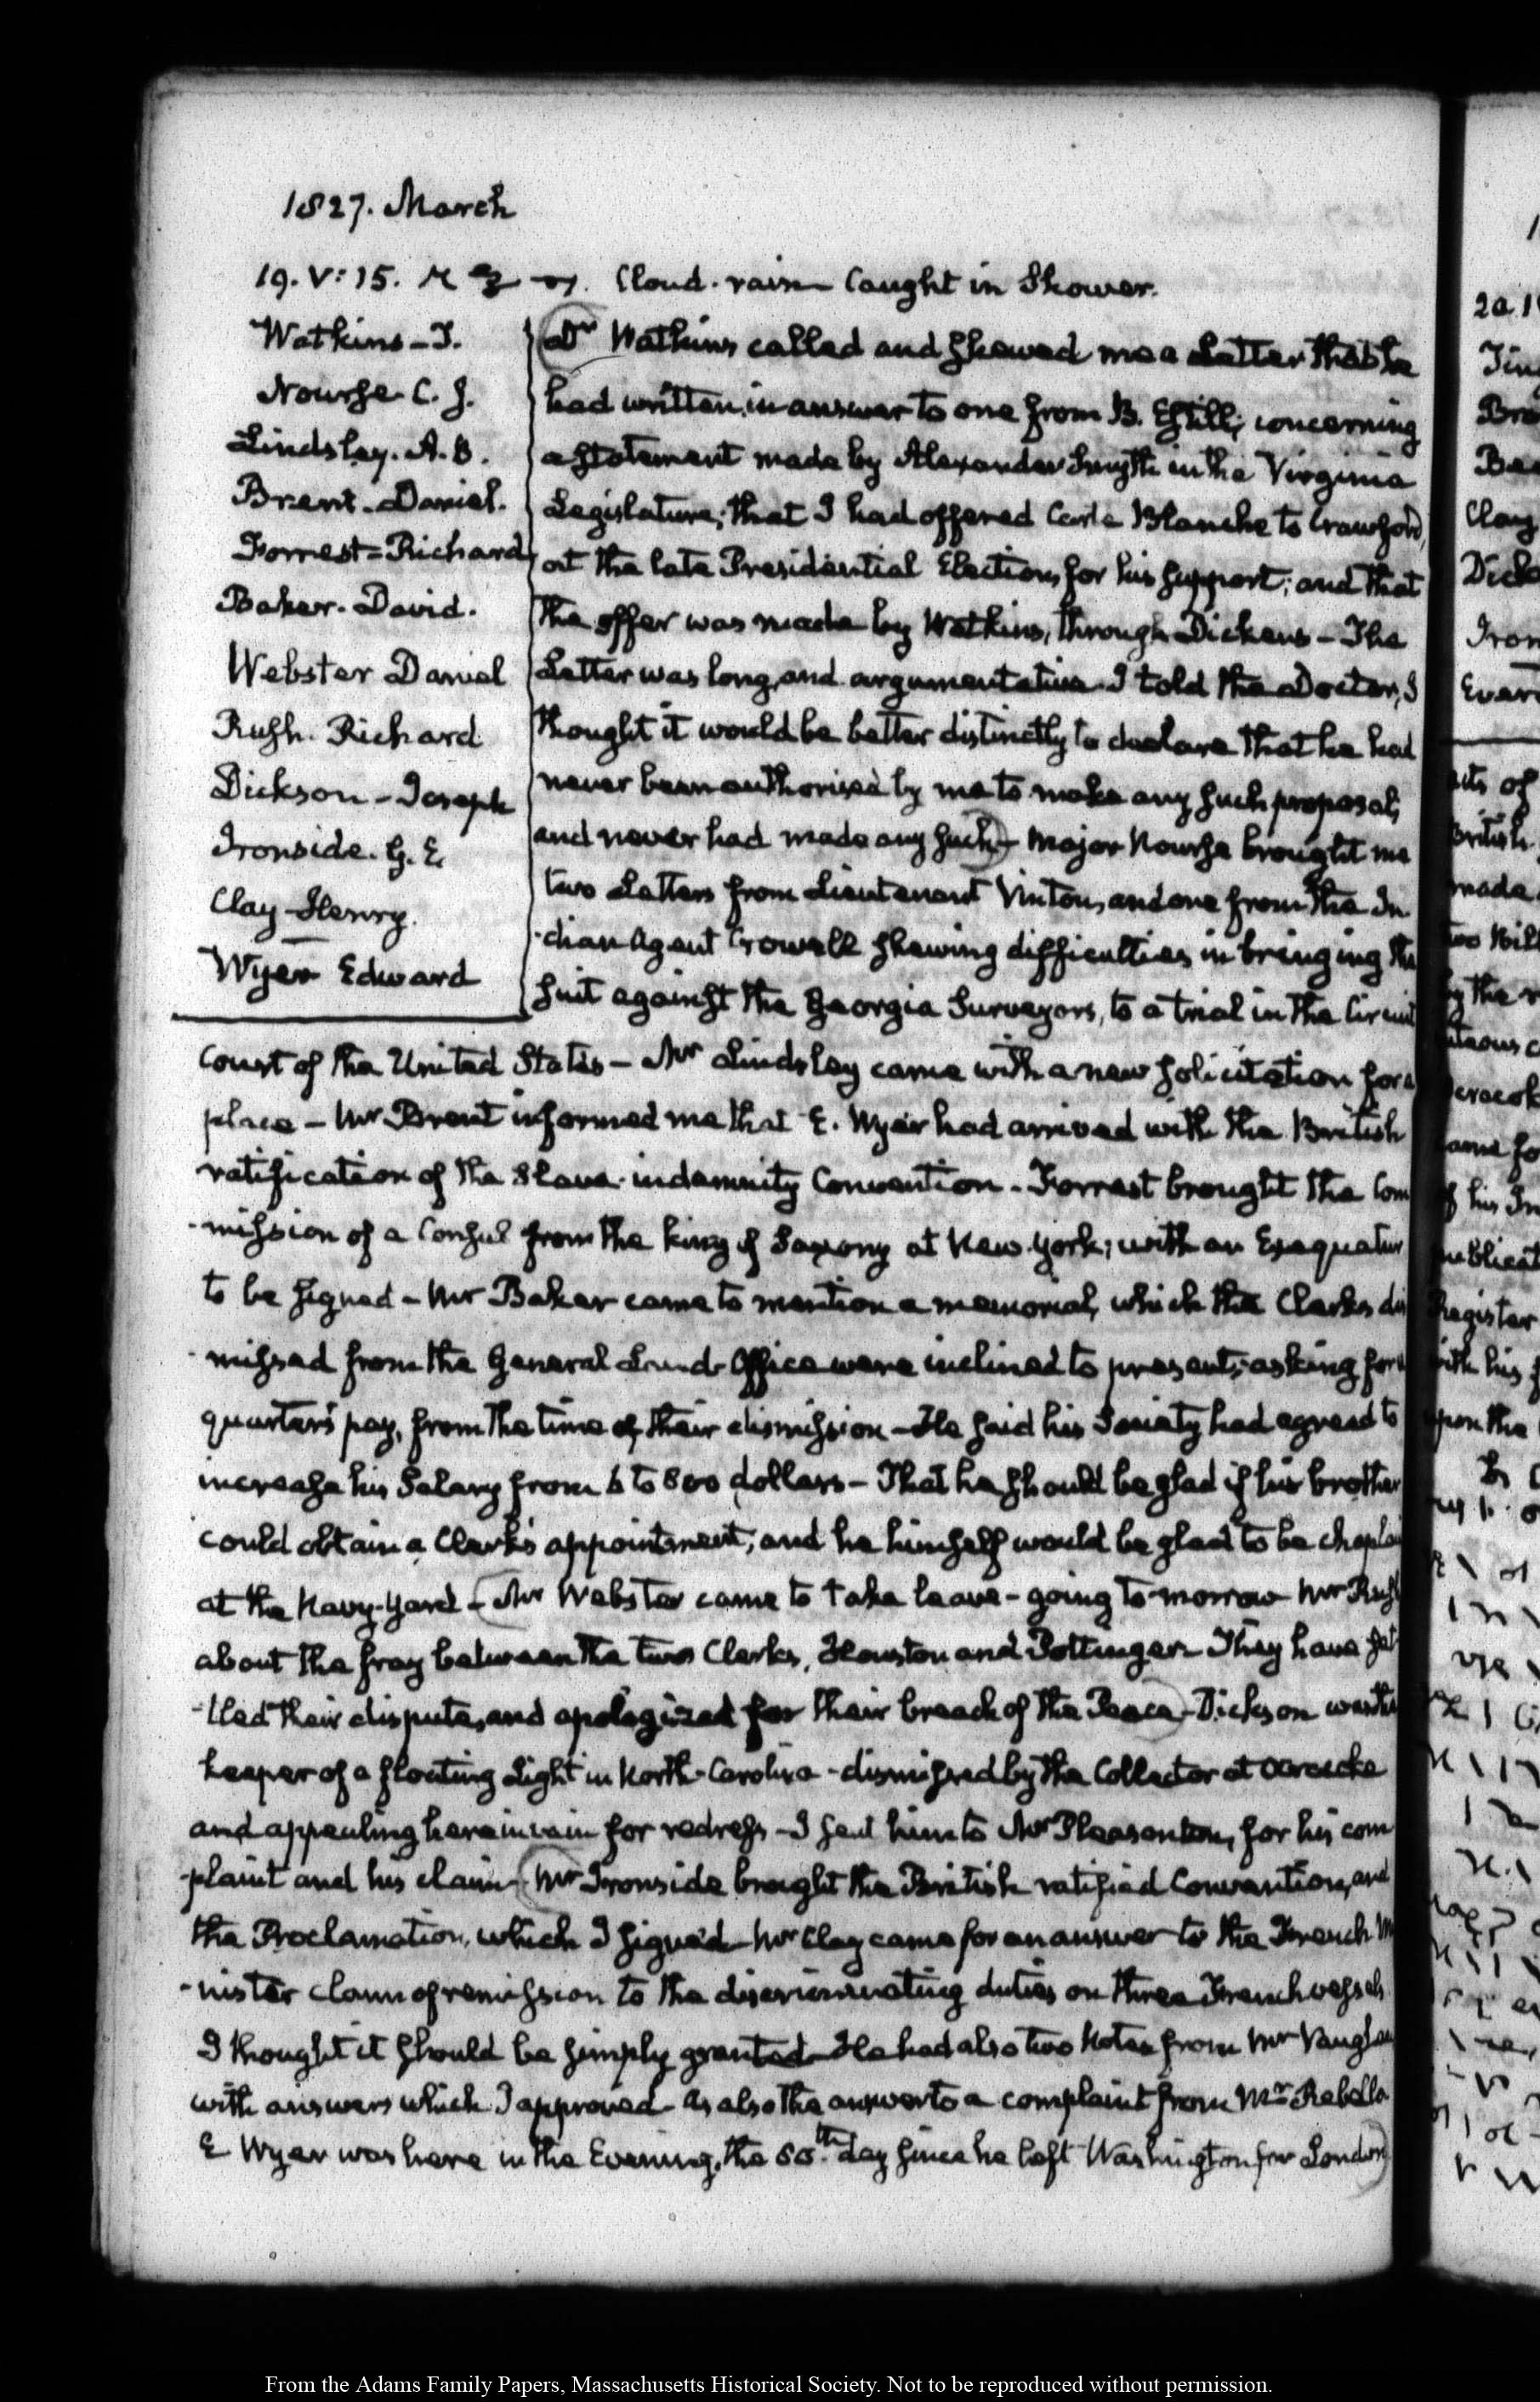 1827. March
19. V:15. Cloud. rain Caught in Shower.
Watkins - T.
Nourse. C. J.
Lindsley. A. B.
Brent - Daniel.
Forrest = Richard
Baker. David.
Webster Daniel
Rush. Richard
Dickson - Joseph
Ironside. G. E.
Clay - Henry.
Wyer Edward
Dr Watkins called and shewed me a Letter that he
had written in answer to one from B. Estill, concerning
a statement made by Alexander Smyth in the Virginia
Legislature; that I had offered Carte Blanche to Crawford,
at the late Presidential Election, for his support; and that
the offer was made by Watkins, through Dickens - The
Letter was long, and argumentative. I told the Doctor, I
thought it would be better distinctly to declare that he had
never been authorised by me to make any such proposal,
and never had made any such - Major Nourse brought me
two Letters from Lieutenant Vinton, and one from the In
-dian Agent Crowell shewing difficulties in bringing the
suit against the Georgia Surveyors, to a trial in the Circuit
Court of the United States - Mr Lindsley came with a new solicitation for a
place - Mr Brent informed me that E. Wyer had arrived with the British
ratification of the Slave-indemnity Convention - Forrest brought the Com
-mission of a Consul from the king of Saxony at New-York; with an Exequatur
to be signed - Mr Baker came to mention a memorial, which the Clerks dis
-missed from the General Land-Office were inclined to present; asking for a
quarter's pay, from the time of their dismission - He said his Society had agreed to
increase his Salary from 6 to 800 dollars - That he should be glad if his brother
could obtain a Clerk's appointment, and he himself would be glad to be chaplain
at the Navy-Yard - Mr Webster came to take leave - going to-morrow Mr Rush
about the fray between the two Clerks, Houston and Pottinger They have set
-tled their dispute, and apologized for their breach of the Peace - Dickson was the
keeper of a floating Light in North-Carolina - dismissed by the Collector at Ocracoke
and appealing here in vain for redress - I sent him to Mr Pleasonton, for his com
-plaint and his claim - Mr Ironside brought the British ratified Convention, and
the Proclamation, which I signed - Mr Clay came for an answer to the French Mi
-nister claim of remission to the discriminating duties on three French vessels
I thought it should be simply granted - He had also two Notes from Mr Vaughan
with answers which I approved - as also the answer to a complaint from Mr Rebello
E Wyer was here in the Evening, the day since he left Washington for London
From the Adams Family Papers, Massachusetts Historical Society. Not to be reproduced without permission.